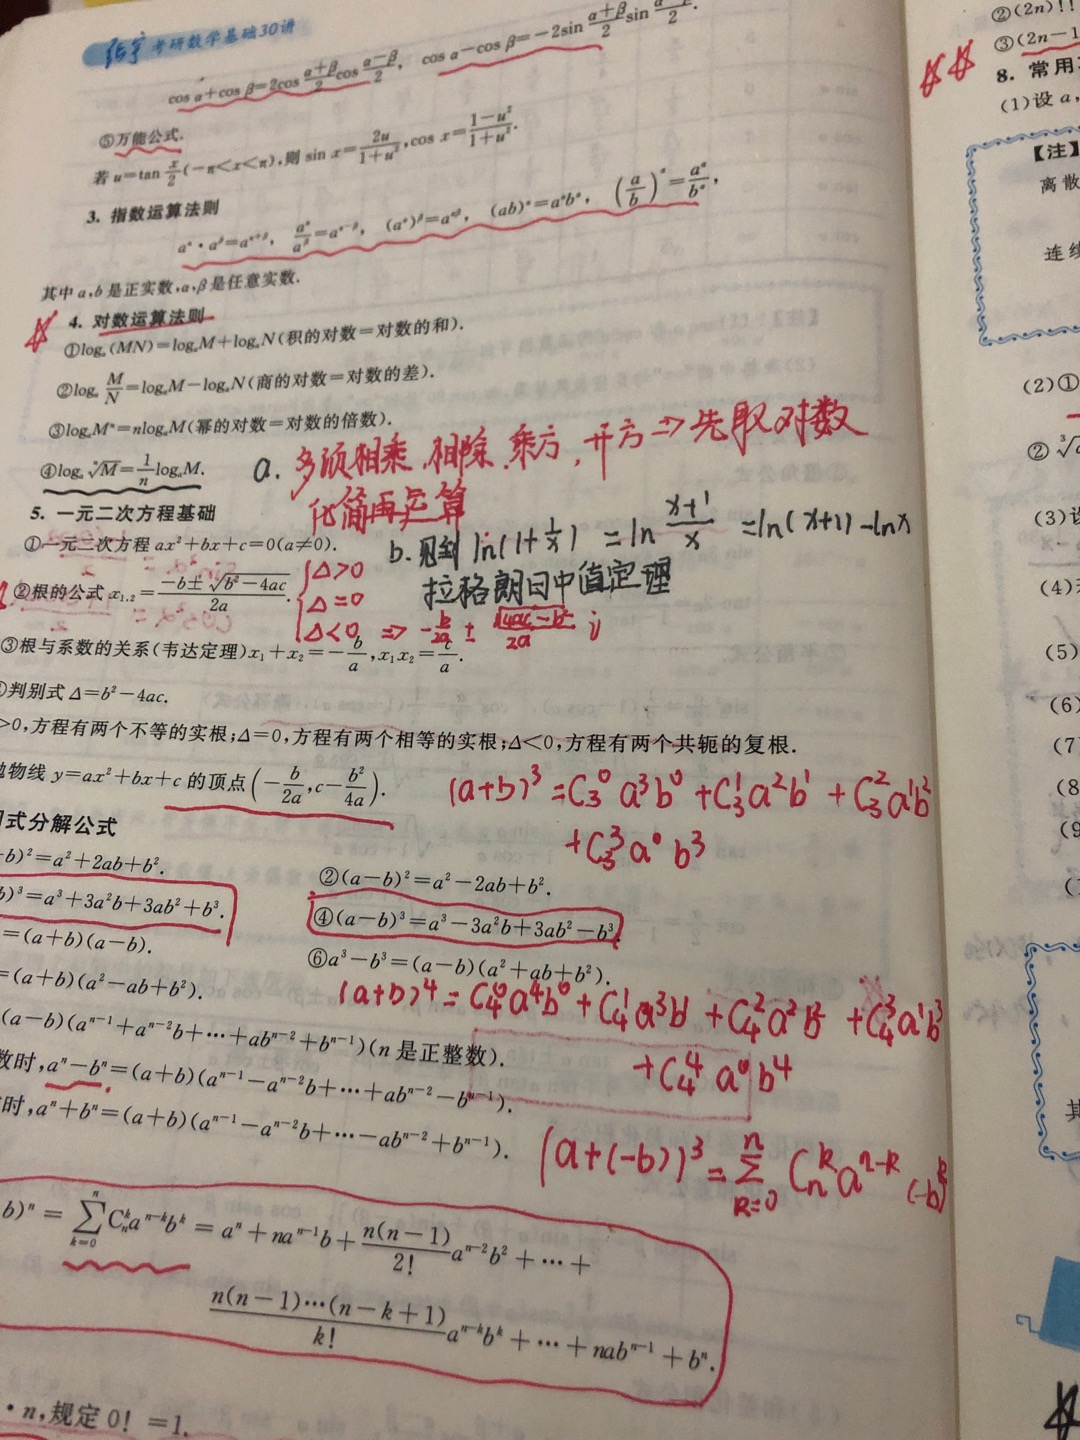 张宇考研数学基础30讲
cos α+cos β=2cos (α+β)/2 cos (α−β)/2, cos α−cos β=−2sin (α+β)/2 sin (α−β)/2.
⑤万能公式.
若 u=tan x/2 (−π<x<π),则 sin x=2u/(1+u²), cos x=(1−u²)/(1+u²).
3. 指数运算法则
a^α·a^β=a^(α+β), a^α/a^β=a^(α−β), (a^α)^β=a^(αβ), (ab)^α=a^α b^α, (a/b)^α=a^α/b^α,
其中 a,b 是正实数,α,β是任意实数.
4. 对数运算法则
①logₐ(MN)=logₐM+logₐN(积的对数=对数的和).
②logₐ M/N=logₐM−logₐN(商的对数=对数的差).
③logₐMⁿ=nlogₐM(幂的对数=对数的倍数).
④logₐ ⁿ√M=1/n logₐM.
a. 多项相乘、相除、乘方, 开方⇒先取对数
化简再运算
5. 一元二次方程基础
b. 见到 ln(1+1/x) = ln (x+1)/x =ln(x+1)−lnx
拉格朗日中值定理
①一元二次方程 ax²+bx+c=0(a≠0).
②根的公式 x₁,₂=(−b±√(b²−4ac))/2a.
Δ>0
Δ=0
Δ<0 ⇒ −b/2a ± √(4ac−b²)/2a i
③根与系数的关系(韦达定理)x₁+x₂=−b/a, x₁x₂=c/a.
判别式 Δ=b²−4ac.
>0,方程有两个不等的实根;Δ=0,方程有两个相等的实根;Δ<0,方程有两个共轭的复根.
物线 y=ax²+bx+c 的顶点(−b/2a, c−b²/4a).
(a+b)³=C₃⁰a³b⁰+C₃¹a²b¹+C₃²a¹b²
+C₃³a⁰b³
式分解公式
b)²=a²+2ab+b².
②(a−b)²=a²−2ab+b².
b)³=a³+3a²b+3ab²+b³.
④(a−b)³=a³−3a²b+3ab²−b³.
=(a+b)(a−b).
⑥a³−b³=(a−b)(a²+ab+b²).
=(a+b)(a²−ab+b²).
(a+b)⁴=C₄⁰a⁴b⁰+C₄¹a³b¹+C₄²a²b²+C₄³a¹b³
+C₄⁴a⁰b⁴
(a−b)(aⁿ⁻¹+aⁿ⁻²b+⋯+abⁿ⁻²+bⁿ⁻¹)(n 是正整数).
数时,aⁿ−bⁿ=(a+b)(aⁿ⁻¹−aⁿ⁻²b+⋯+abⁿ⁻²−bⁿ⁻¹).
时,aⁿ+bⁿ=(a+b)(aⁿ⁻¹−aⁿ⁻²b+⋯−abⁿ⁻²+bⁿ⁻¹).
(a+(−b))³=∑(k=0→n) Cₙᵏaⁿ⁻ᵏ(−b)ᵏ
b)ⁿ=∑(k=0→n) Cₙᵏaⁿ⁻ᵏbᵏ=aⁿ+naⁿ⁻¹b+n(n−1)/2! aⁿ⁻²b²+⋯+
n(n−1)⋯(n−k+1)/k! aⁿ⁻ᵏbᵏ+⋯+nabⁿ⁻¹+bⁿ.
·n,规定 0!=1.
②(2n)!!
③(2n−1
8. 常用
(1)设 a,
【注】
离散
连续
(2)①
②
(3)设
(4)
(5)
(6)
(7
(8
(9